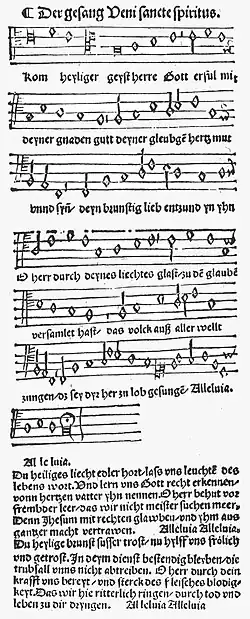 ¶ Der gesang Veni sancte spiritus.
Kom heyliger geyst herre Gott erful mit
deyner gnaden gutt deyner gleubgē hertz mut
vnnd syñ/ deyn brunstig lieb entzund yn yhn
O herr durch deynes liechtes glast/ zu dē glaubē
versamlet hast/ das volck auß aller wellt
zungen/ dz sey dyr her zu lob gesungē/ Alleluia.
Al le luia.
Du heiliges liecht edler hort/ laſs vns leuchtē des
lebens wort. Vnd lern vns Gott recht erkennen/
vonn hertzen vatter yhn nennen. O herr behut vor
frembder leer/ das wir nicht meister suchen meer/
Denn Jhesum mit rechten glawben/ vnd yhm auß
gantzer macht vertrawen. Alleluia Alleluia.
Du heylige brunst susser trost/ nu hylff vns frölich
vnd getrost. In deym dienst bestendig bleyben/ die
trubsall vnns nicht abtreiben. O herr durch dein
krafft vns bereyt/ vnd sterck des fleisches blodig-
keyt. Das wir hie ritterlich ringen/ durch tod vnd
leben zu dir dryngen. Alleluia Alleluia